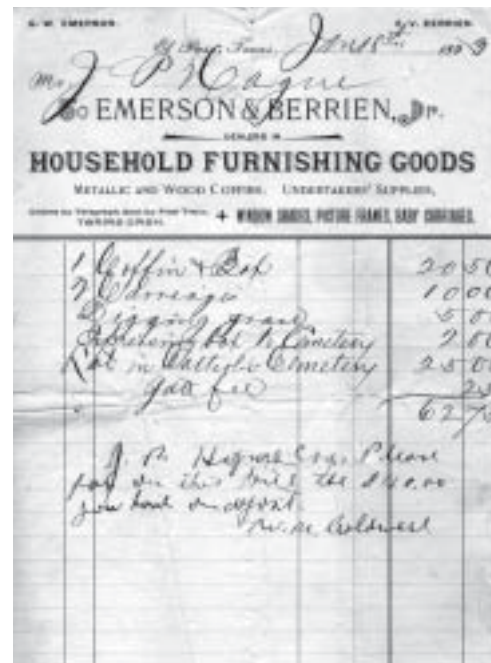 G. W. EMERSON. G. V. BERRIEN.
El Paso, Texas, Jan 18th 1883
Mr. J P Hague
To EMERSON & BERRIEN, Dr.
DEALERS IN
HOUSEHOLD FURNISHING GOODS
METALLIC AND WOOD COFFINS. UNDERTAKERS' SUPPLIES,
Orders by Telegraph Sent by First Train.
TERMS CASH. + WINDOW SHADES, PICTURE FRAMES, BABY CARRIAGES.
1 Coffin & Box 20 50
2 Carriages 10 00
Digging grave 5 00
box to Cemetery 2 00
Lot in Catholic Cemetery 25 00
gate fee 25
62 75
J. P. Hague Esq. Please
pay on this bill the $40.00
you have on deposit.